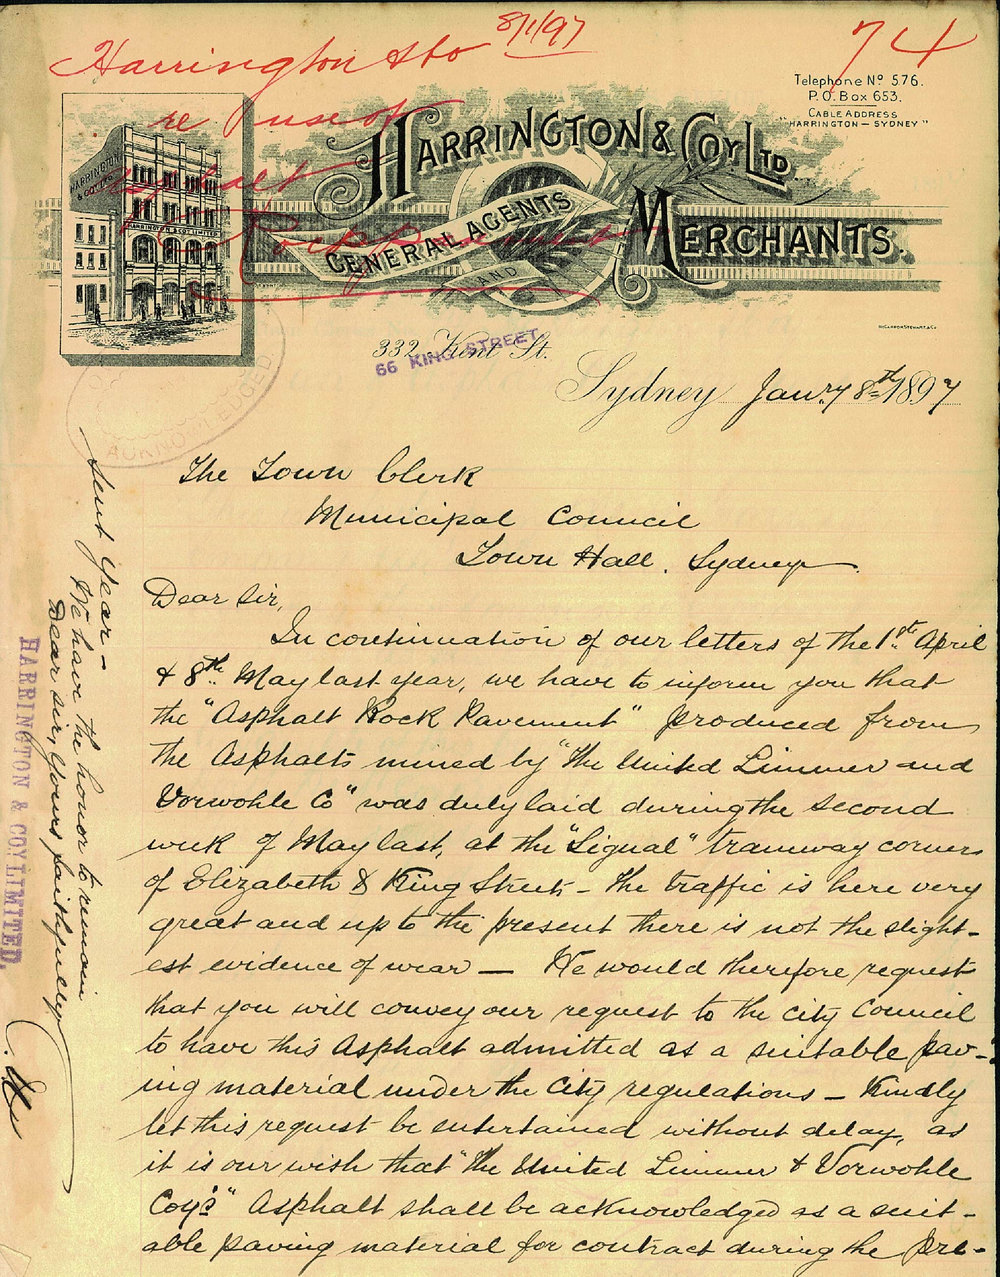 Harrington & Co
8/1/97
74
re use of
Asphalt
Rock Pavement
Telephone No 576.
P.O. Box 653.
Cable Address
"Harrington – Sydney"
Harrington & Coy Ltd
General Agents
and
Merchants.
Harrington
& Coy Ltd
Harrington & Coy Limited
332 Kent St.
66 KING STREET
ACKNOWLEDGED.
Sydney Jany 8th 1897
The Town Clerk
Municipal Council
Town Hall, Sydney
Dear Sir,
In continuation of our letters of the 1st April
& 8th May last year, we have to inform you that
the "Asphalt Rock Pavement" produced from
the Asphalts mined by "The United Limmer and
Vorwohle Co" was duly laid during the second
week of May last, at the "Signal" tramway corner
of Elizabeth & King Streets – The traffic is here very
great and up to the present there is not the slight-
est evidence of wear – We would therefore request
that you will convey our request to the City Council
to have this Asphalt admitted as a suitable pav-
ing material under the City regulations – Kindly
let this request be entertained without delay, as
it is our wish that "The United Limmer & Vorwohle
Coy's" Asphalt shall be acknowledged as a suit-
able paving material for contract during the pre-
sent year –
We have the honor to remain
Dear Sir, Yours faithfully
HARRINGTON & COY. LIMITED.